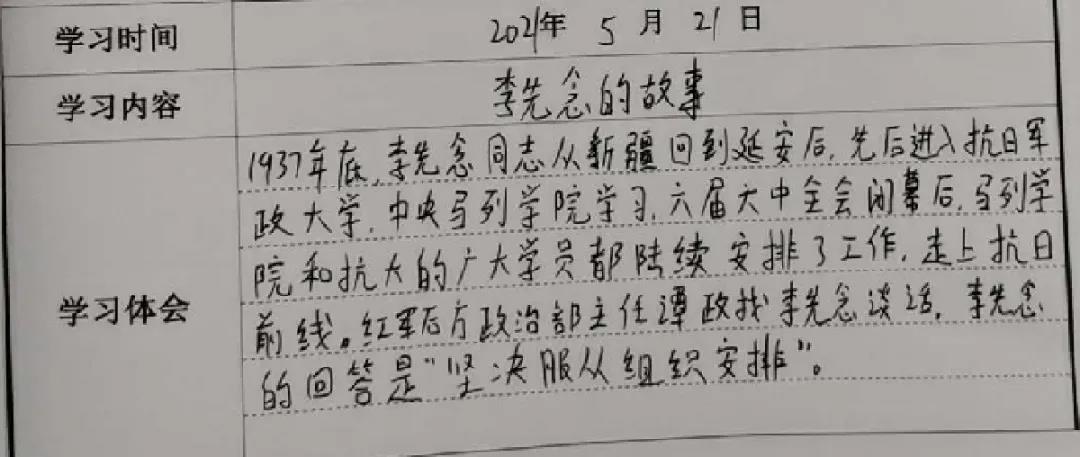 学习时间 2021年 5 月 21 日
学习内容 李先念的故事
学习体会
1937年底,李先念同志从新疆回到延安后,先后进入抗日军
政大学,中央马列学院学习,六届大中全会闭幕后,马列学
院和抗大的广大学员都陆续安排了工作,走上抗日
前线。红军后方政治部主任谭政找李先念谈话,李先念
的回答是“坚决服从组织安排”。